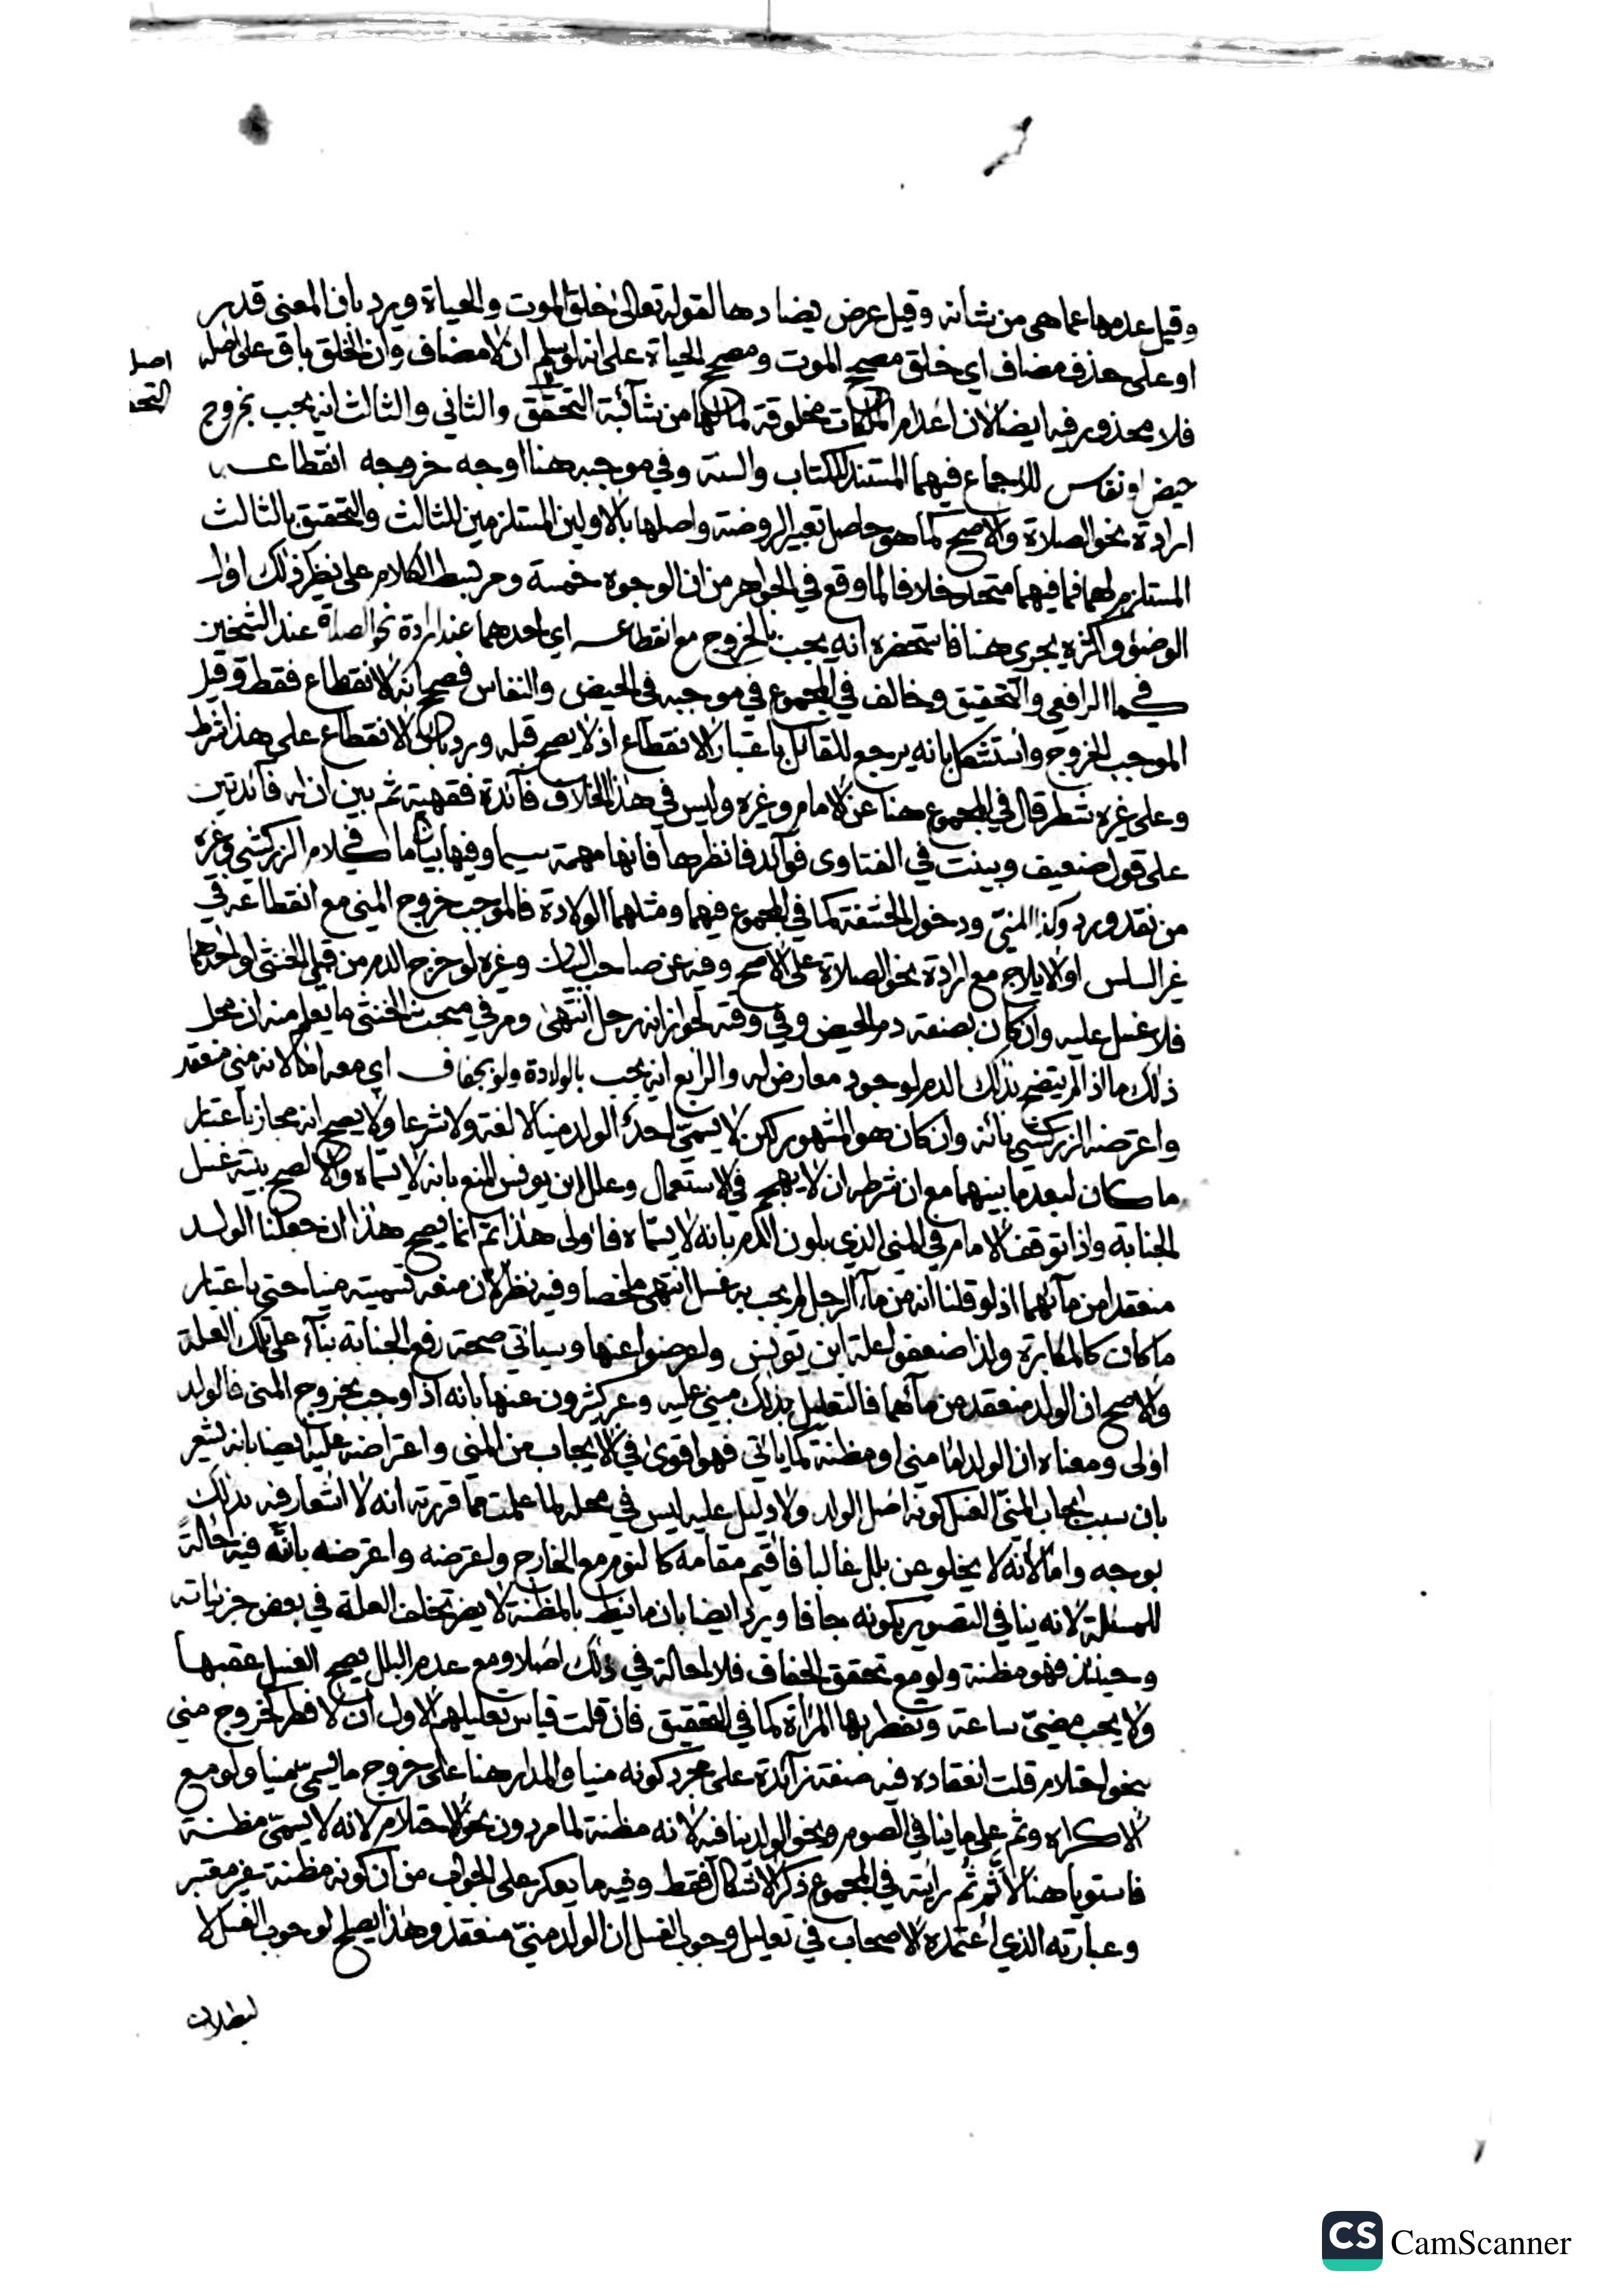 وقيل عدمها عما هي من شأنه وقيل عرض يضادها لقوله تعالى خلق الموت والحياة ويرد بان المعنى قدر
او على حذف مضاف اي خلق مصحح الموت ومصحح الحياة على انه لو سلم ان لا مضاف وان الخلق باق على اصله
اصل
فلا محذور فيه ايضا لان اعدام الملكات مخلوقة لما لها من شائبة التحقق والثاني والثالث انه يجب بخروج
حيض او نفاس للاجماع فيهما المستند للكتاب والسنة وفي موجبه هنا اوجه خروجه انقطاعه
ارادة نحو الصلاة والاصح كما هو حاصل تعبير الروضة واصلها بالاولين المستلزمين للثالث والتحقيق بالثالث
المستلزم لهما فما فيهما متحد خلافا لما وقع في الجواهر من ان الوجوه خمسة ومر بسط الكلام على نظير ذلك اول
الوضوء واكثره يجري هنا فاستحضره انه يجب بالخروج مع انقطاعه اي احدهما عند ارادة نحو الصلاة عند الشيخين
كما الرافعي والتحقيق وخالف في المجموع في موجبه في الحيض والنفاس فصحح انه الانقطاع فقط وقيل
الموجب الخروج واستشكل بانه يرجع للقائل باعتبار الانقطاع اذ لا يصح قبله ورد بان الانقطاع على هذا شرط
وعلى غيره شطر قال في المجموع هنا عن الامام وغيره وليس في هذا الخلاف فائدة فقهية ثم بين ان له فائدتين
على قول ضعيف وبينت في الفتاوى فوائد فانظرها فانها مهمة سيما وفيها بيان ما في كلام الزركشي وغيره
من نقد ورد وكذا المني ودخول الحشفة كما في المجموع فيهما ومثلهما الولادة فالموجب خروج المني مع انقطاعه في
غير السلس او الايلاج مع ارادة نحو الصلاة على الاصح وفيه عن صاحب البيان وغيره لو خرج الدم من قبلي الخنثى او احدهما
فلا غسل عليه وان كان بصفة دم الحيض وفي وقته لجواز انه رجل انتهى ومر في مبحث الخنثى ما يعلم منه ان محل
ذلك ما اذا لم يتضح بذلك الدم لوجود معارض له والرابع انه يجب بالولادة ولو بجفاف اي معه اما لانه مني منعقد
واعترضه الزركشي بانه وان كان هو المشهور لكن لا يسمي احد الولد منيا لا لغة ولا شرعا ولا يصح انه مجاز باعتبار
ما كان لبعد ما بينهما مع ان شرطه ان لا يهجر في الاستعمال وعلل ابن يونس المنع بانه لا يسماه والا لصح بنية غسل
الجنابة واذا توقف الامام في المني الذي بلون الدم بانه لا يسماه فاولى هذا ثم انما يصح هذا ان جعلنا الولد
منعقدا من مائهما اذ لو قلنا انه من ماء الرجل لم يجب به غسل انتهى ملخصا وفيه نظر لان منعه تسميته منيا حتى باعتبار
ما كان كالمكابرة ولذا ضعفوا علة ابن يونس واعرضوا عنها وسياتي صحة رفع الجنابة بناء على تلك العلة
والاصح ان الولد منعقد من مائهما فالتعليل بذلك مبني عليه وعبر كثيرون عنها بانه اذا وجب بخروج المني فالولد
اولى ومعناه ان الولد اما مني او مظنة كما ياتي فهو اقوى في الايجاب من المني واعتراضه عليه ايضا بانه يشعر
بان سبب ايجاب المني الغسل كونه اصل الولد ولا دليل عليه ليس في محله لما علمت مما قررته انه لا اشعار فيه بذلك
بوجه واما لانه لا يخلو عن بلل غالبا فاقيم مقامه كالنوم مع الخارج واعترضه واعترضه بانه فيه احالة
للمسئلة لانه ينافي التصوير بكونه جافا ويرد ايضا بان ما نيط بالمظنة لا يضر تخلف العلة في بعض جزئياته
وحينئذ فهو مظنة ولو مع تحقق الجفاف فلا احالة في ذلك اصلا ومع عدم البلل يصح الغسل عقبها
ولا يجب مضي ساعة وتفطر بها المراة كما في التحقيق فان قلت قياس تعليلهم الاول ان لا فطر كخروج مني
بنحو احتلام قلت انعقاده فيه صفة زائدة على مجرد كونه منيا والمدار هنا على خروج ما يسمى منيا ولو مع
الاكراه وثم على ما ينافي الصوم ونحو الولد ينافيه لانه مظنة لما مر دون نحو الاحتلام لانه لا يسمى مظنة
فاستويا هنا لا ثم ثم رايته في المجموع ذكر الاشكال فقط وفيه ما يعكر على الجواب من ان كونه مظنة غير معتبر
وعبارته الذي اعتمده الاصحاب في تعليل وجوب الغسل ان الولد مني منعقد وهذا يصلح لوجوب الغسل لا
لبطلان
CS CamScanner